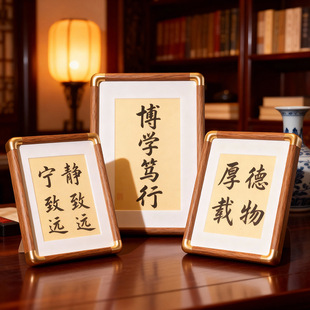 宁静
致致
远远
博学笃行
厚德
载物